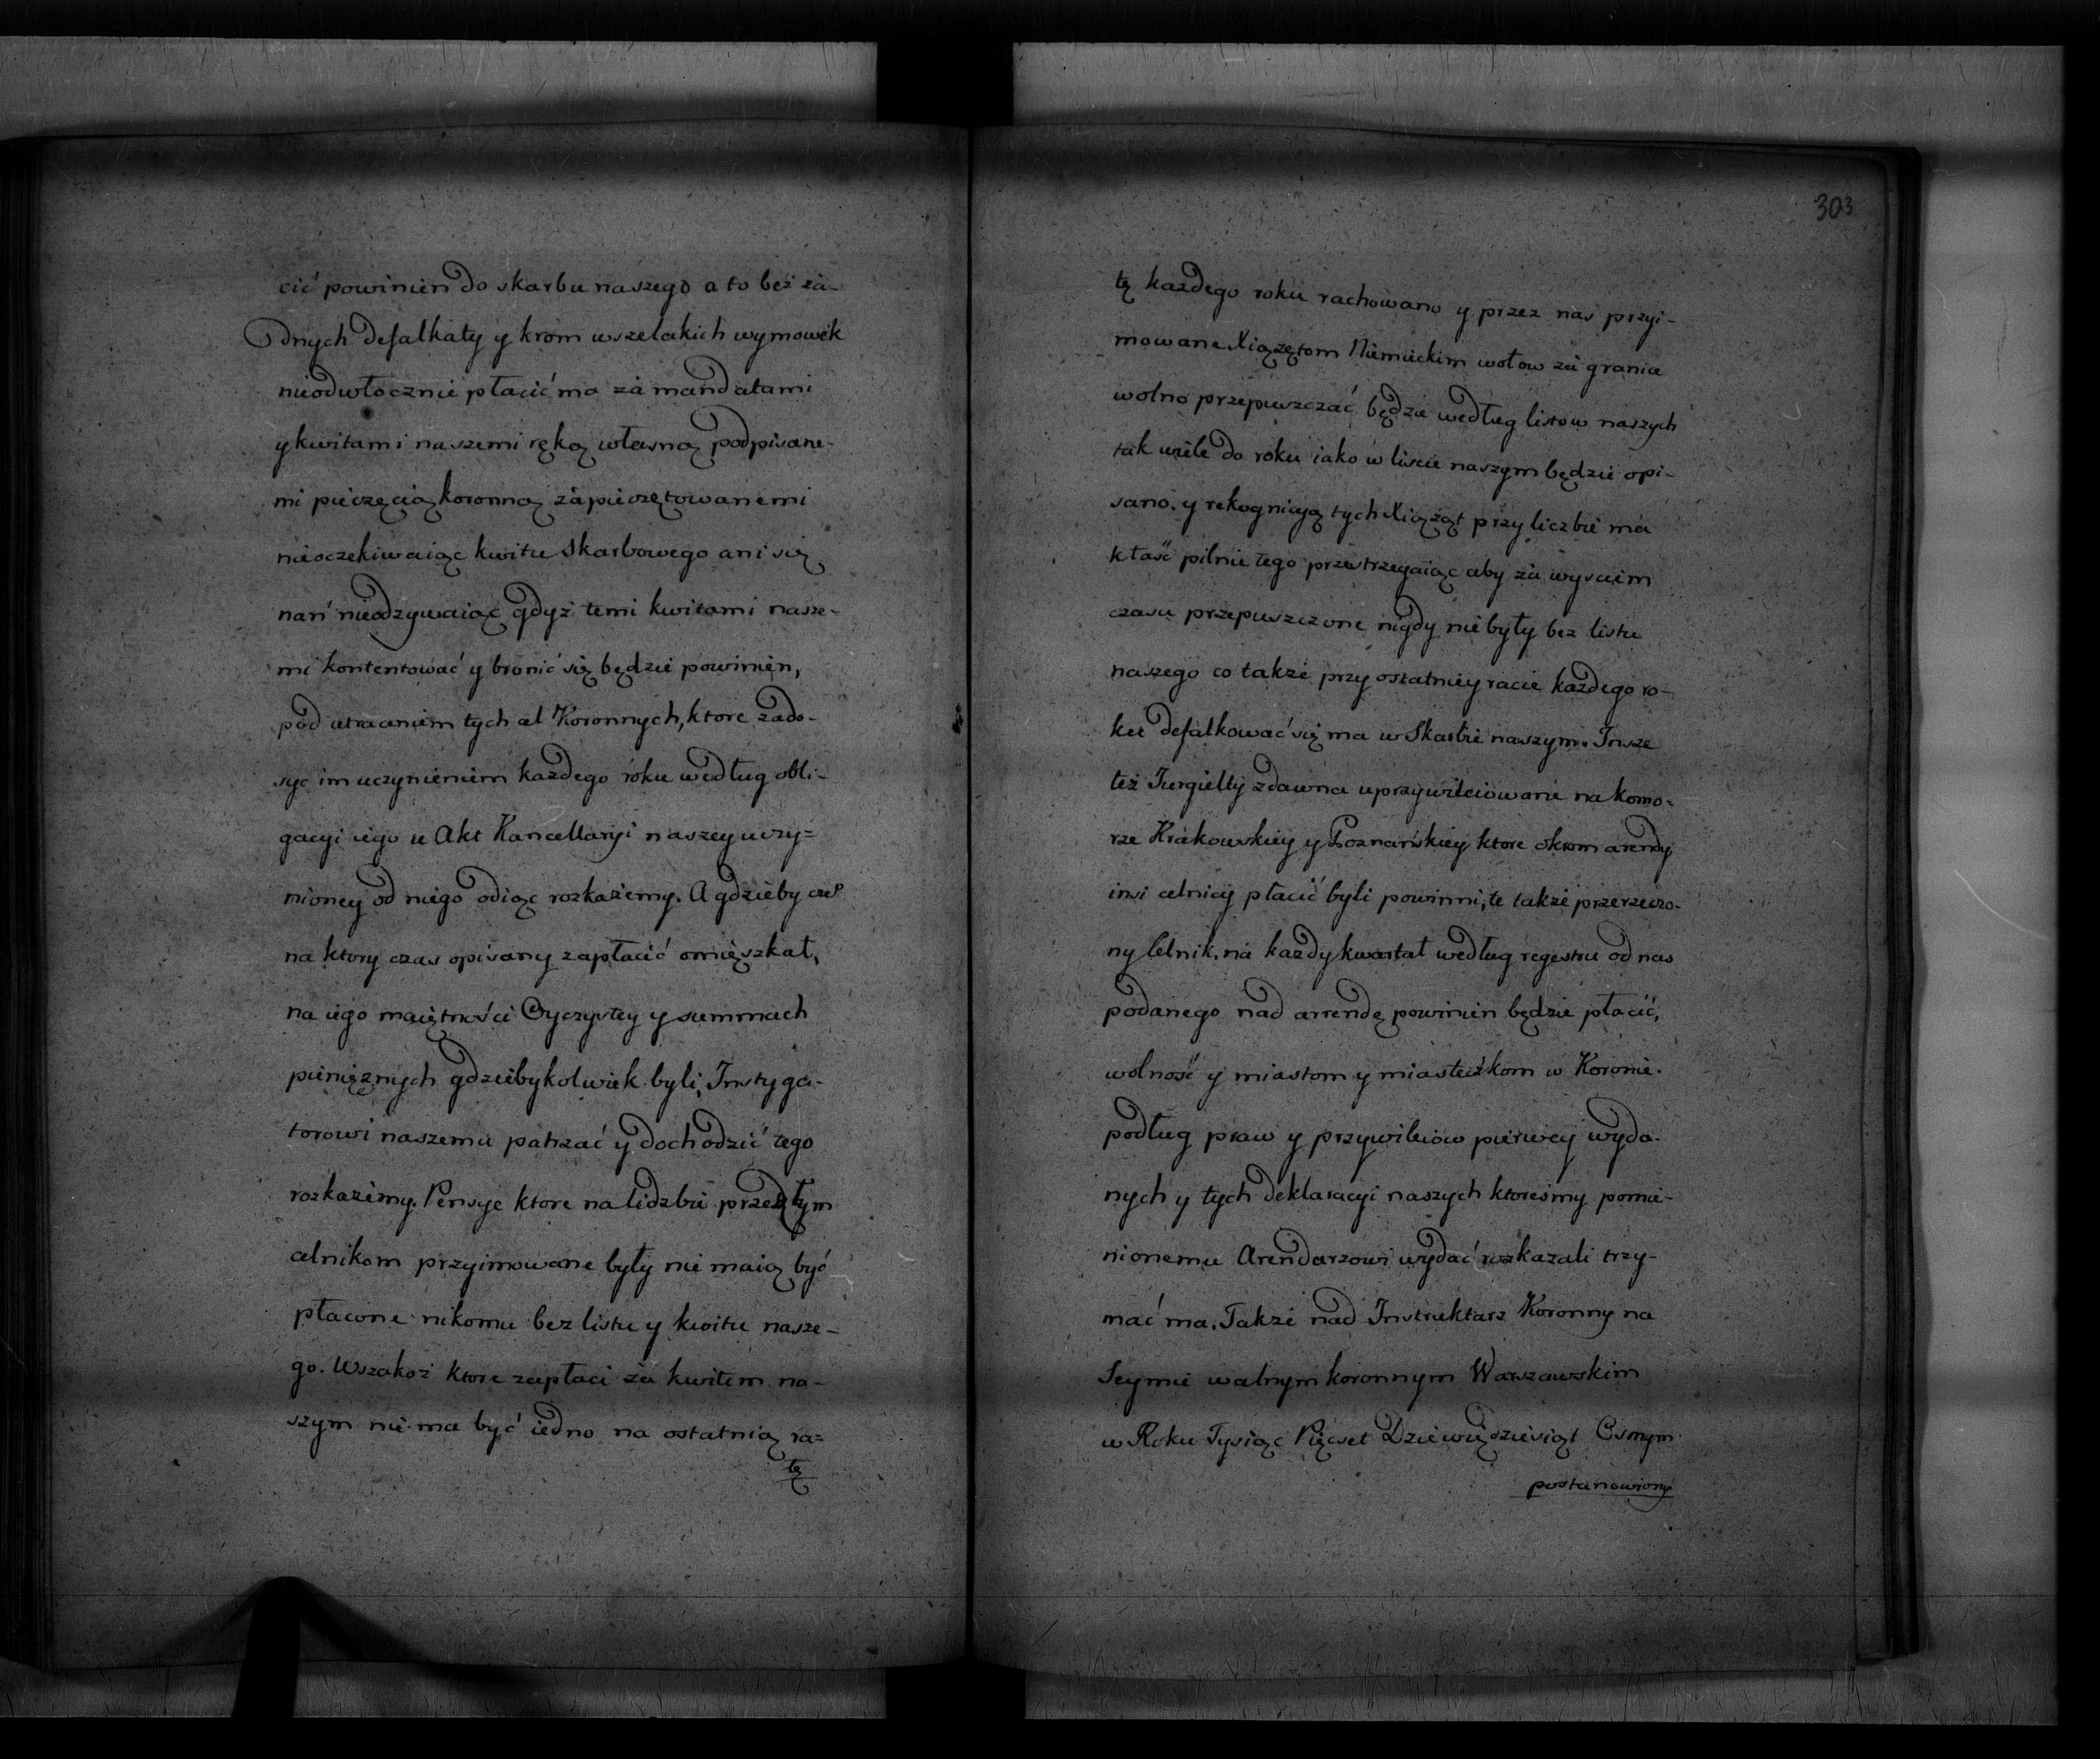 cić powinien do skarbu naszego a to bez ża-
dnych defalkaty y krom wszelakich wymowek
nieodwłocznie płacić ma za mandatami
y kwitami naszemi ręką własną podpisane-
mi pieczęcią koronną zapieczętowanemi
nieoczekiwaiąc kwitu Skarbowego ani się
nań nieodzywaiąc gdyż temi kwitami nasze-
mi kontentować y bronić się będzie powinien,
pod utraceniem tych cel Koronnych, ktore zado-
syc im uczynieniem każdego roku według obli-
gacyi iego u Akt Kancellaryi naszey uczy=
nioney od niego odiąc rozkażemy. A gdzieby
na ktory czas opisany zapłacić omięszkał,
na iego maiętności Oyczystey y summach
pieniężnych gdziebykolwiek byli, Instyga-
torowi naszemu patrzać y dochodzić tego
rozkażemy. Pensye ktore na lidzbie przed tym
celnikom przyimowane były nie maią być
płacone nikomu bez listu y kwitu nasze-
go. Wszakoż ktore zapłaci za kwitem na-
szym nie ma być iedno na ostatnią ra=
tę
303
tę każdego roku rachowano y przez nas przyi-
mowane Xiążętom Niemieckim wołow za granice
wolno przepuszczać będzie według listow naszych
tak wiele do roku iako w liscie naszym będzie opi-
sano. y rekognicyą tych Xiążąt przy liczbie ma
kłaść pilnie tego przestrzegaiąc aby za wysciem
czasu przepuszczone nigdy nie były bez listu
naszego co także przy ostatniey racie każdego ro-
ku defalkować się ma w Skarbie naszym. Insze
też Jurgielty zdawna uprzywileiowane na komo-
rze Krakowskiey y Poznańskiey ktore okrom arendy
insi celnicy płacić byli powinni, te także przerzeczo-
ny Celnik. na każdy kwartał według regestru od nas
podanego nad arrendę powinien będzie płacić,
wolność y miastom y miasteczkom w Koronie.
podług praw y przywileiow pierwey wyda-
nych y tych deklaracyi naszych ktoresmy pomie-
nionemu Arendarzowi wydać rozkazali trzy-
mać ma. Także nad Instruktarz Koronny na
Seymie walnym koronnym Warszawskim
w Roku Tysiąc Pięcset Dziewięćdziesiąt Osmym
postanowiony